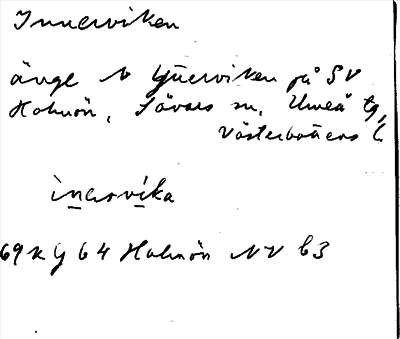 Innerviken
änge N Ytterviken på SV
Holmön, Sävars sn, Umeå tg,
Västerbottens l
ìnərvika
69 K y 64 Holmön NV b3